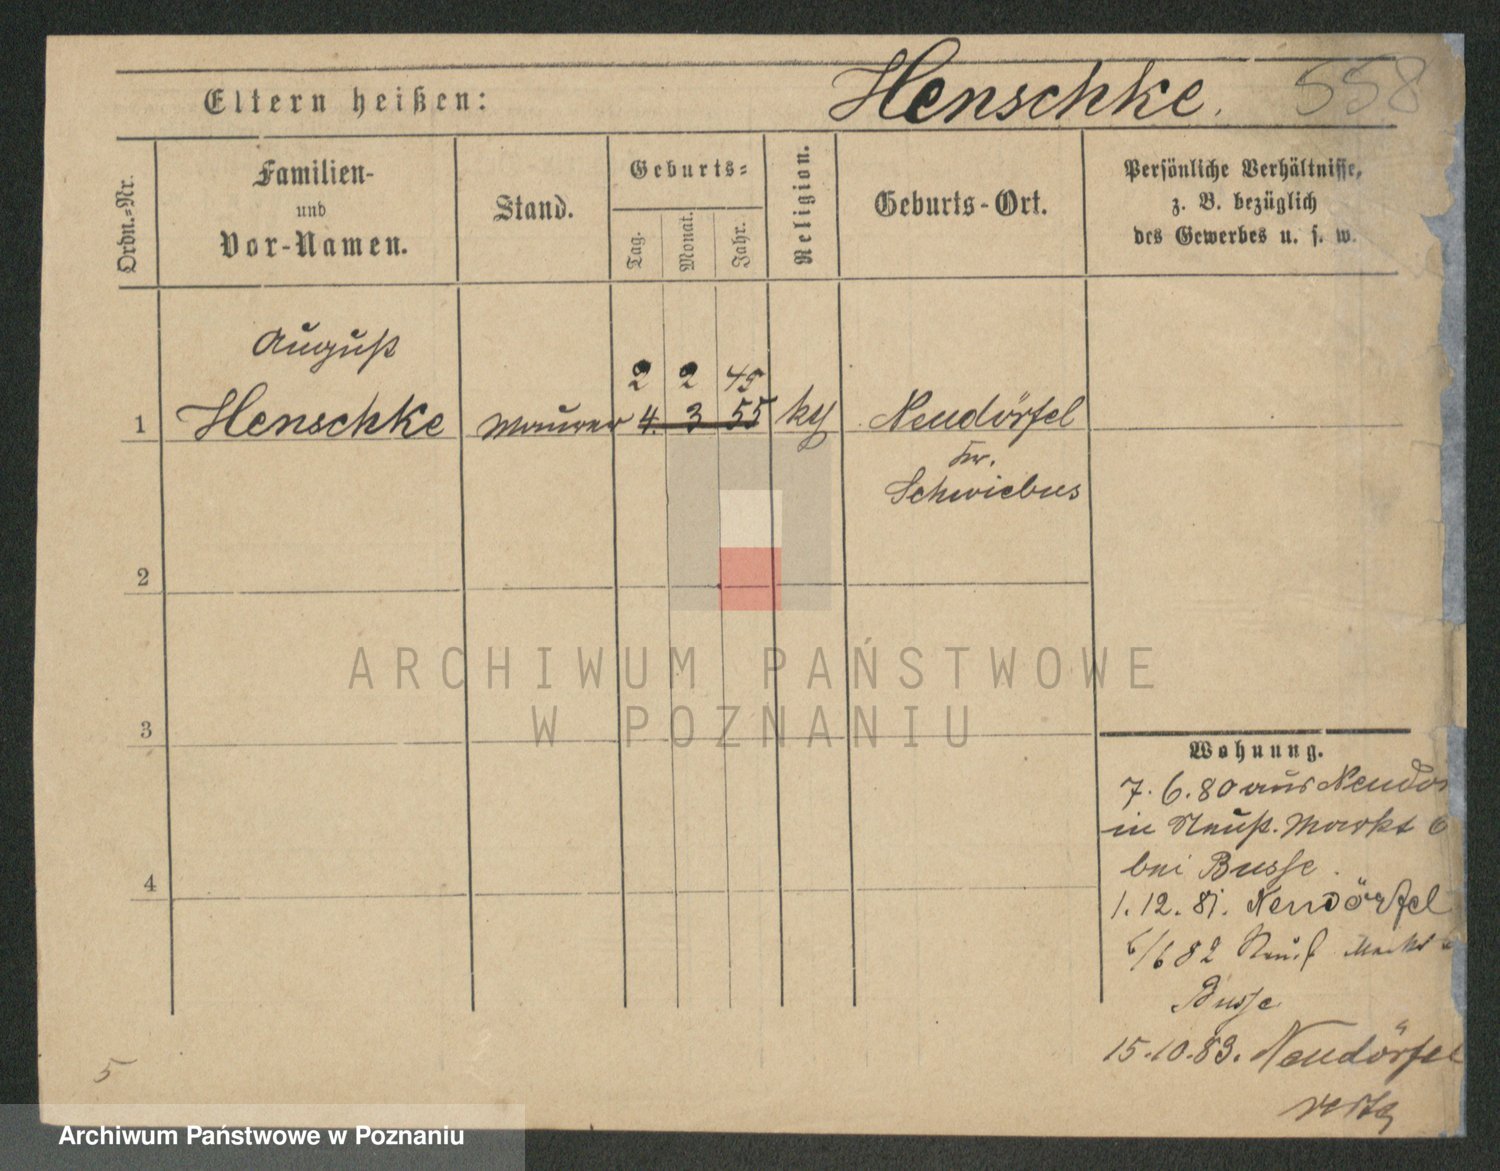 Eltern heißen:
Henschke.
558
Ordn.-Nr.
Familien-
und
Vor-Namen.
Stand.
Geburts-
Tag.
Monat.
Jahr.
Religion.
Geburts-Ort.
Persönliche Verhältnisse,
z. B. bezüglich
des Gewerbes u. s. w.
August
2 2 45
1 Henschke Maurer 4. 3 55 Neudörfel
Kr.
Schwiebus
2
3
4
ARCHIWUM PAŃSTWOWE
W POZNANIU
Wohnung.
7. 6. 80 aus Neudör
in Neust. Markt 6
bei Busse.
1. 12. 81. Neudörfel
6/6 82 Neust Markt
Busse
15.10.83. Neudörfel
5
Archiwum Państwowe w Poznaniu